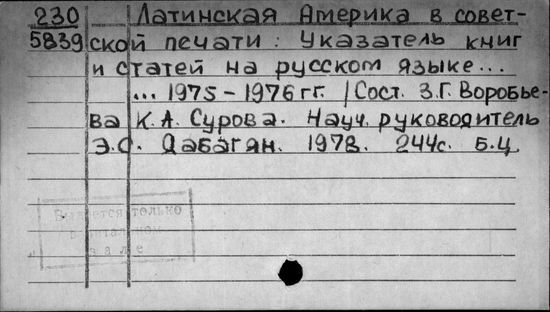 230 Латинская Америка в совет-
5839 ской печати: Указатель книг
и статей на русском языке...
... 1975-1976 гг. /Сост. З.Г. Воробье-
ва К.А. Сурова. Науч. руководитель
Э.С. Дабагян. 1978. 244с. Б.ц.
Выдается только
в читальном
зале